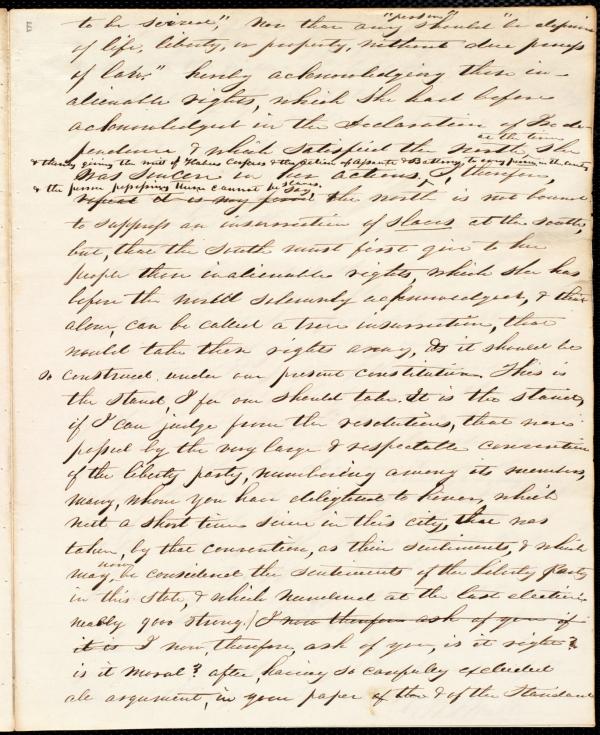 to be seized," Nor that any "person" should "be deprived
of life, liberty, or property, without due process
of law." hereby acknowledging those in-
alienable rights, which she had before
acknowledged in the Declaration of Inde-
pendence & which satisfied the North, at the time she
& thereby giving the writ of Habeas Corpus & the action of Assault & Battery to any person in the country
was sincere in her actions, I, therefore,
& the person possessing them cannot be slaves.
repeat it is my the north is not bound
to suppress an insurrection of slaves at the South,
but, that the South must first give to her
people those inalienable rights, which she has
before the world solemnly acknowledged, & that
alone, can be called a true insurrection, that
would take these rights away, & it should be
so construed under our present constitution. This is
the stand, I for one should take. It is the stand,
if I can judge from the resolutions, that were
passed by the very large & respectable convention
of the liberty party, numbering among its members,
many, whom you have delighted to honor, which
met a short time since in this city, that was
taken, by that convention, as their sentiments, & which
may now be considered the sentiments of the liberty party
in this State, & which numbered at the last election
nearly 9000 strong. I now therefore ask of you if
it is I now, therefore, ask of you, is it right?
is it moral? after, having so carefully excluded
all argument, in your paper of the & of the Standard